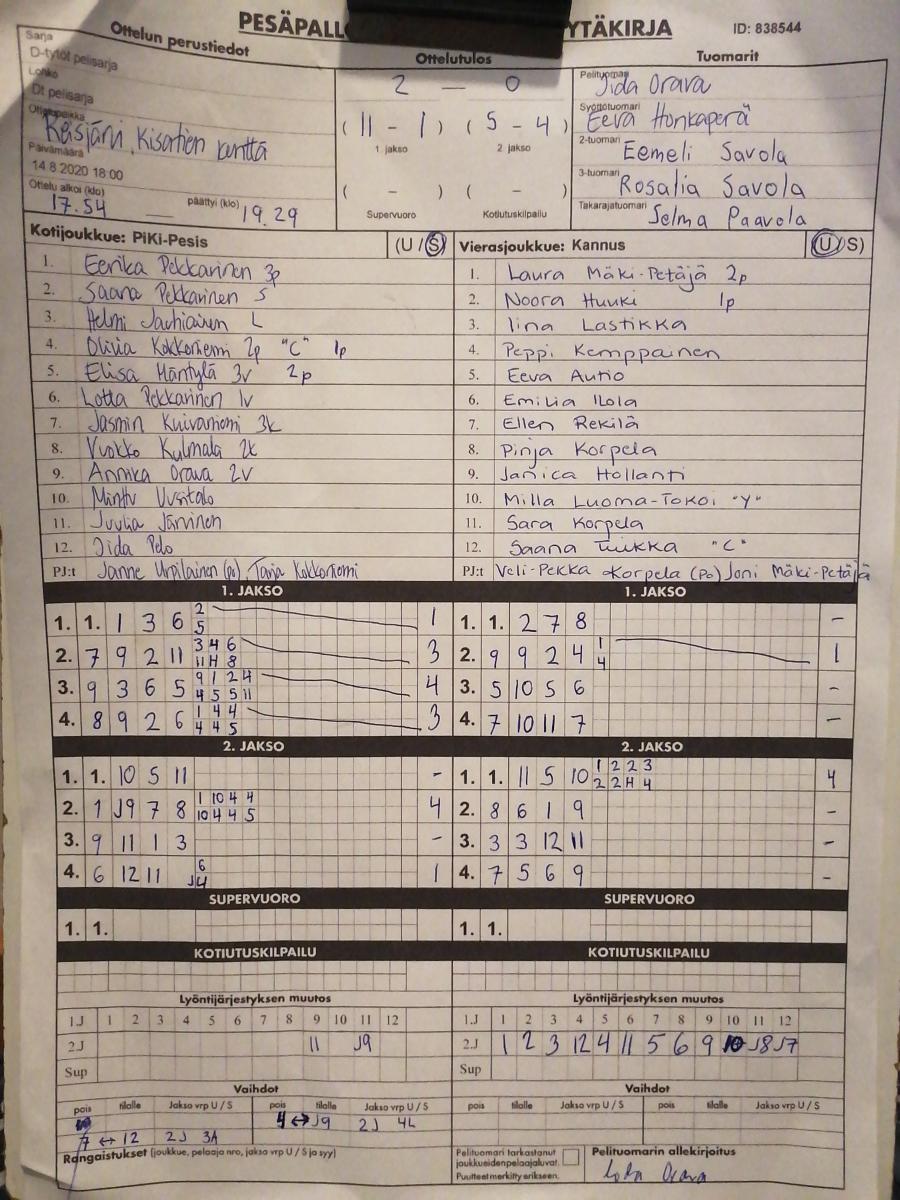 PESÄPALL YTÄKIRJA ID: 838544
Ottelun perustiedot
Sarja
D-tytöt pelisarja
Lohko
Dt pelisarja
Ottelupaikka
Reisjärvi, Kisatien kenttä
Päivämäärä
14.8.2020 18:00
Ottelu alkoi (klo) päättyi (klo)
17.54 — 19.29
Ottelutulos
2 — 0
( 11 - 1 ) ( 5 - 4 )
1 jakso 2 jakso
( - ) ( - )
Supervuoro Kotiutuskilpailu
Tuomarit
Pelituomari Iida Orava
Syöttötuomari Eeva Honkaperä
2-tuomari Eemeli Savola
3-tuomari Rosalia Savola
Takarajatuomari Selma Paavola
Kotijoukkue: PiKi-Pesis (U / S)
1. Eerika Pekkarinen 3p
2. Saana Pekkarinen S
3. Helmi Jauhiainen L
4. Olivia Kokkoniemi 2p "C" 1p
5. Elisa Mäntylä 3v 2p
6. Lotta Pekkarinen 1v
7. Jasmin Kuivaniemi 3k
8. Vuokko Kulmala 2k
9. Annika Orava 2v
10. Minttu Uusitalo
11. Juulia Järvinen
12. Iida Pelo
PJ:t Janne Urpilainen (po), Tarja Kokkoniemi
Vierasjoukkue: Kannus (U / S)
1. Laura Mäki-Petäjä 2p
2. Noora Huuki 1p
3. Iina Lastikka
4. Peppi Kemppainen
5. Eeva Autio
6. Emilia Ilola
7. Ellen Rekilä
8. Pinja Korpela
9. Janica Hollanti
10. Milla Luoma-Tokoi "Y"
11. Sara Korpela
12. Saana Tuikka "C"
PJ:t Veli-Pekka Korpela (Po) Joni Mäki-Petäjä
1. JAKSO
1. 1. 1 3 6 2 1
5
2. 7 9 2 11 3 4 6 3
11 H 8
3. 9 3 6 5 9 1 2 4 4
4 5 5 11
4. 8 9 2 6 1 4 4 3
4 4 5
1. JAKSO
1. 1. 2 7 8 -
2. 9 9 2 4 1 1
4
3. 5 10 5 6 -
4. 7 10 11 7 -
2. JAKSO
1. 1. 10 5 11 -
2. 1 J9 7 8 1 10 4 4 4
10 4 4 5
3. 9 11 1 3 -
4. 6 12 11 6 1
J4
2. JAKSO
1. 1. 11 5 10 1 2 2 3 4
2 2 H 4
2. 8 6 1 9 -
3. 3 3 12 11 -
4. 7 5 6 9 -
SUPERVUORO
1. 1.
SUPERVUORO
1. 1.
KOTIUTUSKILPAILU
KOTIUTUSKILPAILU
Lyöntijärjestyksen muutos
1.J 1 2 3 4 5 6 7 8 9 10 11 12
2J 11 J9
Sup
Lyöntijärjestyksen muutos
1.J 1 2 3 4 5 6 7 8 9 10 11 12
2J 1 2 3 12 4 11 5 6 9 10 J8 J7
Sup
Vaihdot
pois tilalle Jakso vrp U / S pois tilalle Jakso vrp U / S
4 ↔ J9 2J 4L
7 ↔ 12 2J 3A
Vaihdot
pois tilalle Jakso vrp U / S pois tilalle Jakso vrp U / S
Rangaistukset (joukkue, pelaaja nro, jakso vrp U / S ja syy)
Pelituomari tarkastanut
joukkueidenpelaajaluvat.
Puutteet merkitty erikseen.
Pelituomarin allekirjoitus
Iida Orava